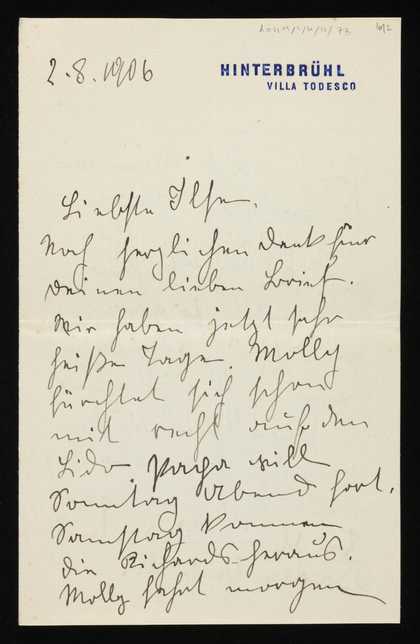 2.8.1906
HINTERBRÜHL
VILLA TODESCO
Liebste Ilse.
Noch herzlichen Dank für
Deinen lieben Brief.
Wir haben jetzt sehr
heiße Tage. Molly
fürchtet sich schon
mit recht auf den
Lido Papa will
Sonntag Abend fort.
Samstag kommen
die Richards heraus.
Molly fährt morgen